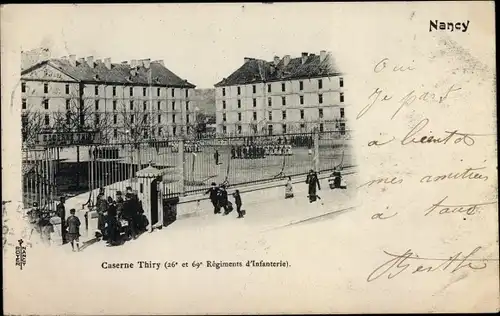 Nancy
Oui
Je pars
à bientôt
mes amitiés
à tante
Berthe
Caserne Thiry (26e et 69e Régiments d'Infanterie).